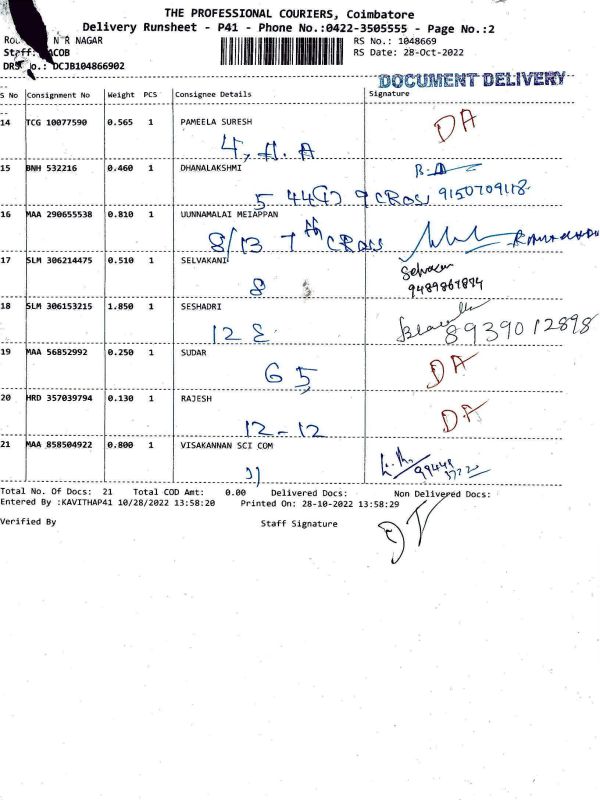 THE PROFESSIONAL COURIERS, Coimbatore
Delivery Runsheet - P41 - Phone No.:0422-3505555 - Page No.:2
NAGAR
RS No.: 1048669
RS Date: 28-Oct-2022
DCJB104866902
DOCUMENT DELIVERY
S No Consignment No Weight PCS Consignee Details Signature
14 TCG 10077590 0.565 1 PAMEELA SURESH DA
4, H.A
15 BNH 532216 0.460 1 DHANALAKSHMI
5 9 CROSS 9150709118
16 MAA 290655538 0.810 1 UUNNAMALAI MEIAPPAN
8/13 7th CROSS
17 SLM 306214475 0.510 1 SELVAKANI
8 9489867894
18 SLM 306153215 1.850 1 SESHADRI
12 E 8939012898
19 MAA 56852992 0.250 1 SUDAR DA
G 5
20 HRD 357039794 0.130 1 RAJESH DA
12-12
21 MAA 858504922 0.800 1 VISAKANNAN SCI COM
11
Total No. Of Docs: 21 Total COD Amt: 0.00 Delivered Docs: Non Delivered Docs:
Entered By :KAVITHAP41 10/28/2022 13:58:20 Printed On: 28-10-2022 13:58:29
Verified By Staff Signature